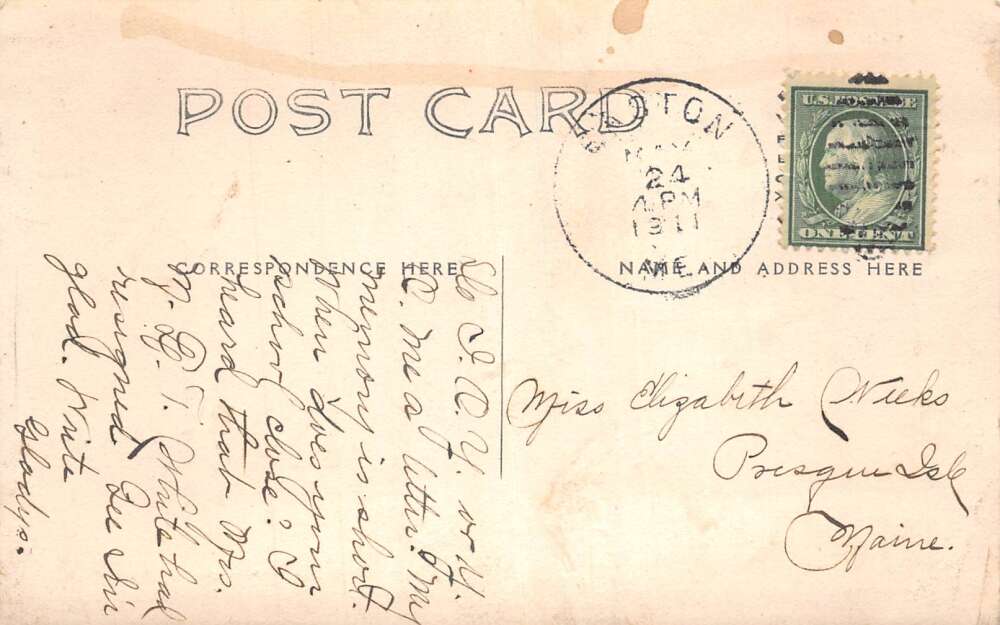 POST CARD
EASTON
MAY
24
4 PM
1911
ME.
U.S. POSTAGE
ONE CENT
CORRESPONDENCE HERE
NAME AND ADDRESS HERE
Do I. O. U. or U.
O. me a letter? My
memory is short.
When does your
school close? I
heard that Mrs.
M. L. T. White had
resigned. Gee I'm
glad. Write
Gladys.
Miss Elizabeth Weeks
Presque Isle
Maine.